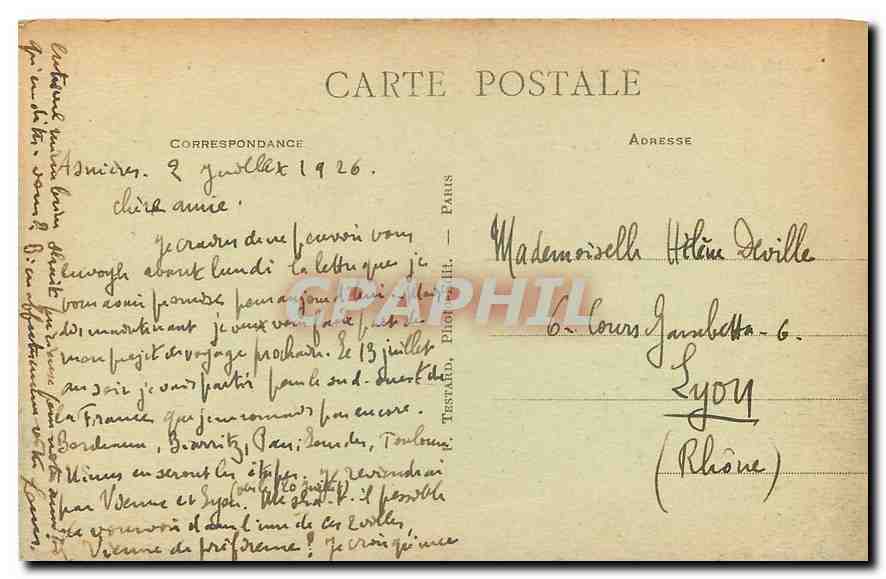 CARTE POSTALE
CORRESPONDANCE
ADRESSE
Asnières. 2 Juillet 1926.
Chère amie.
Je crains de ne pouvoir vous
envoyer avant lundi la lettre que je
vous avais promise pour aujourd'hui. Mais
dès maintenant je veux vous faire part de
mon projet de voyage prochain. Le 13 juillet
au soir je vais partir pour le sud-ouest de
la France que je ne connais pas encore.
Bordeaux, Biarritz, Pau, Lourdes, Toulouse
Nîmes en seront les étapes. Je reviendrai
par Vienne et Lyon (vers le 20 juillet). Me sera-t-il possible
de vous voir dans l'une de ces 2 villes,
Vienne de préférence? Je crois que ce
qu'en dites-vous?
TESTARD, Photo-Edit. — PARIS
Mademoiselle Hélène Deville
6 - Cours Gambetta - 6.
Lyon
(Rhône)
CPAPHIL